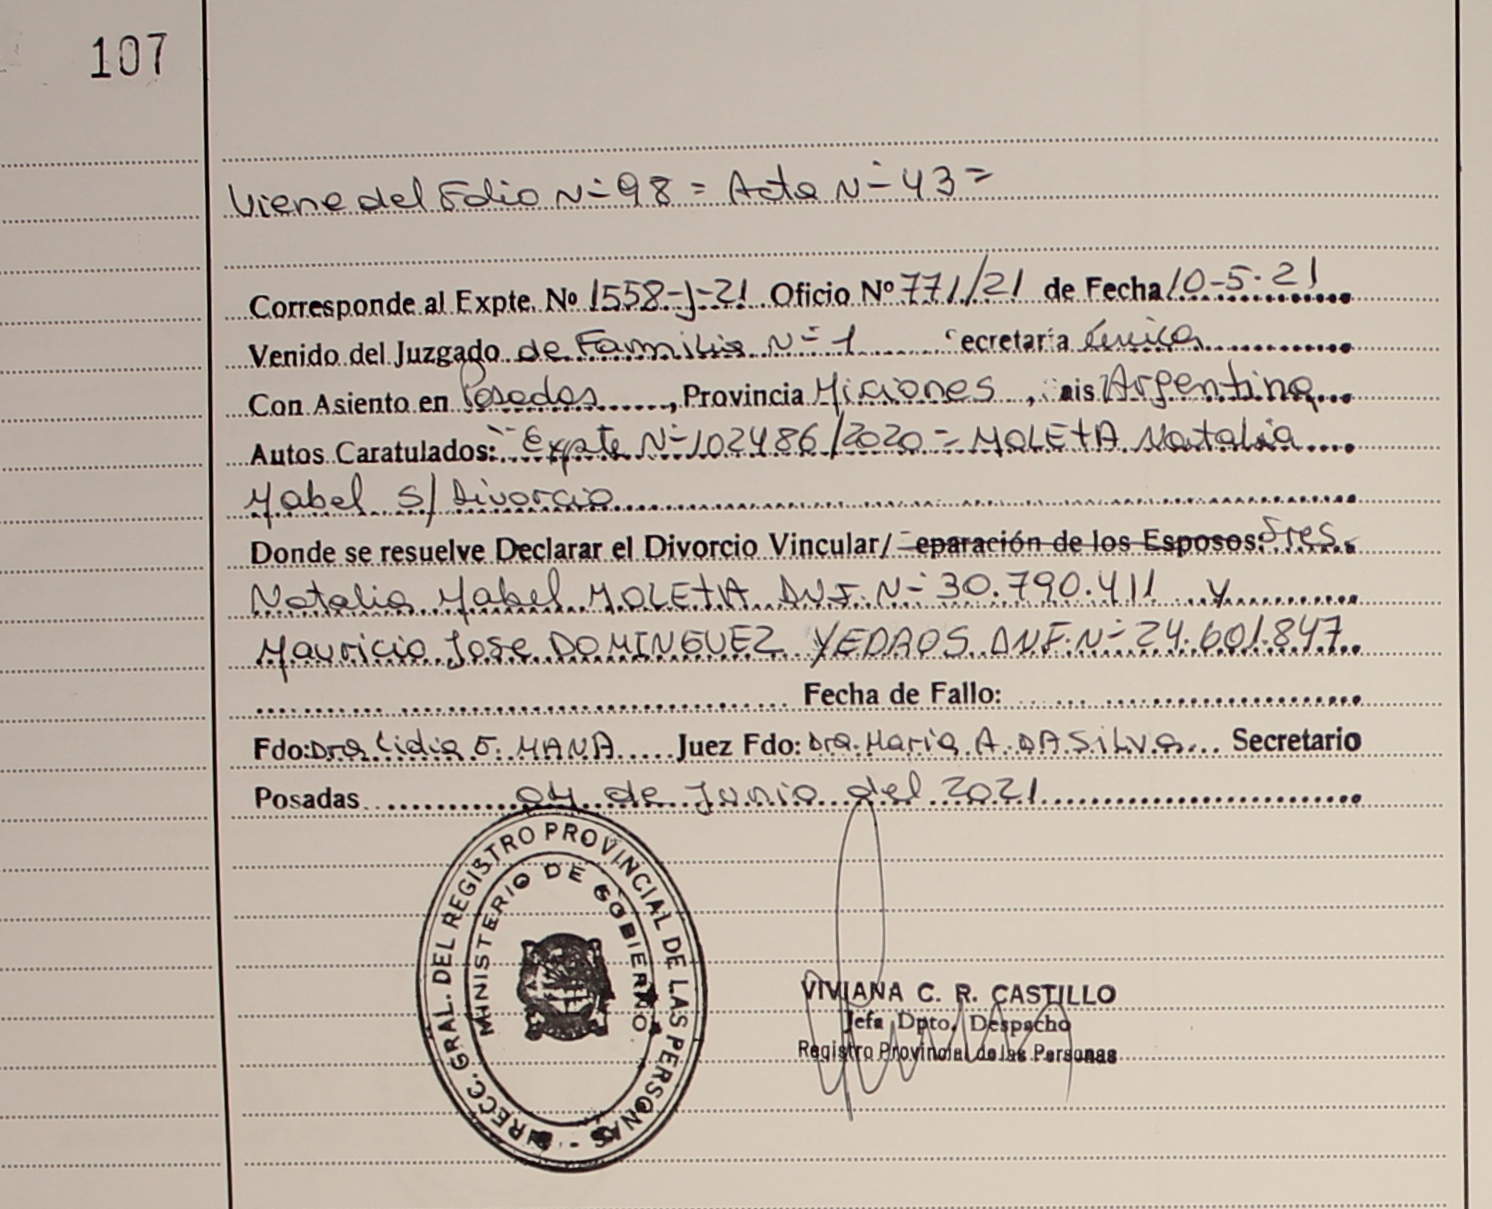 107
Viene del Folio Nº 98 = Acta Nº 43 =
Corresponde al Expte. Nº 1558-J-21 Oficio Nº 771/21 de Fecha 10-5-21
Venido del Juzgado de Familia Nº 1 ecretaría única
Con Asiento en Posadas, Provincia Miciones, aís Argentina
Autos Caratulados: "Expte Nº 102486/2020 = MOLETA Natalia
Mabel s/ Divorcio
Donde se resuelve Declarar el Divorcio Vincular/ eparación de los Esposos: Sres.
Natalia Mabel MOLETA DNI. Nº 30.790.411 y
Mauricio Jose DOMINGUEZ YEDROS DNI. Nº 24.601.847
Fecha de Fallo:
Fdo: Dra Lidia E. MANA Juez Fdo: Dra. Maria A. DA SILVA Secretario
Posadas 04 de Junio del 2021
DIRECC. GRAL. DEL REGISTRO PROVINCIAL DE LAS PERSONAS -
MINISTERIO DE GOBIERNO
VIVIANA C. R. CASTILLO
Jefa Dpto. Despacho
Registro Provincial de las Personas